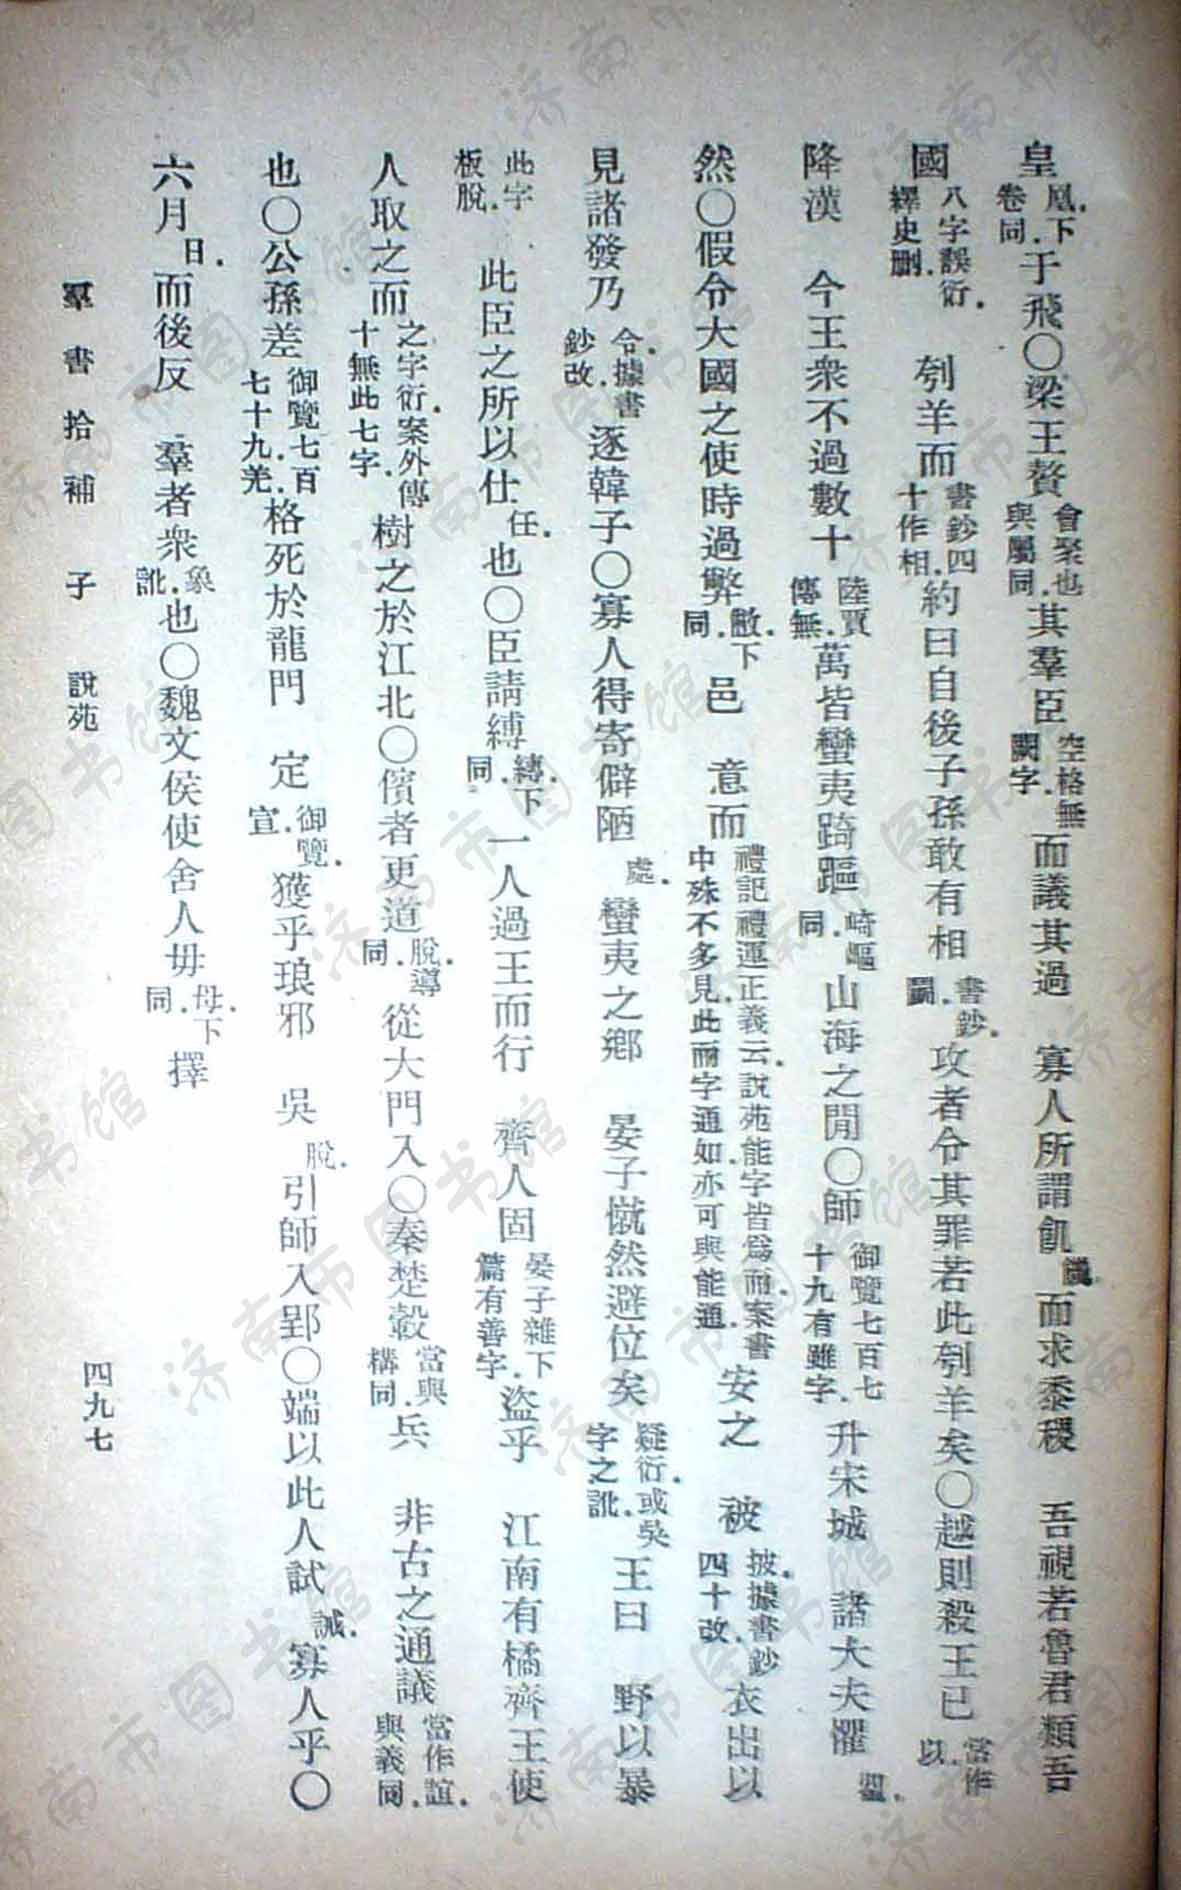 皇凰.下卷同.于飛○梁王贅會聚也與屬同.其羣臣空格無闕字.而議其過　寡人所謂飢饑而求黍稷　吾視若魯君類吾
國八字誤衍.繹史刪.　刳羊而書鈔四十作相.約曰自後子孫敢有相書鈔.鬭.攻者令其罪若此刳羊矣○越則殺王已當作以.
降漢　今王衆不過數十陸賈傳無.萬皆蠻夷踦䧢崎嶇同.山海之閒○師御覽七百七十九有雖字.升宋城　諸大夫懼
然○假令大國之使時過弊敝.下同.邑　意而禮記禮運正義云.說苑能字皆爲而.案書中殊不多見.此而字通如.亦可與能通.安之　被披.據書鈔四十改.衣出以
見諸發乃令.據書鈔改.逐韓子○寡人得寄僻陋處.蠻夷之鄉　晏子慨然避位矣疑衍.或吳字之訛.王曰　野以暴
此字板脫.此臣之所以仕任.也○臣請縛縳.下同.一人過王而行　齊人固晏子雜下篇有善字.盜乎　江南有橘齊王使
人取之而之字衍.案外傳十無此七字.樹之於江北○儐者更道脫.導同.從大門入○秦楚轂當與構同.兵　非古之通議當作誼.與義同.
也○公孫差御覽七百七十九.羌.格死於龍門　定御覽.宣.獲乎琅邪　吳脫.引師入郢○端以此人試誠.寡人乎○
六月日.而後反　羣者衆象訛.也○魏文侯使舍人毋母.下同.擇
羣書拾補　子　說苑
四九七